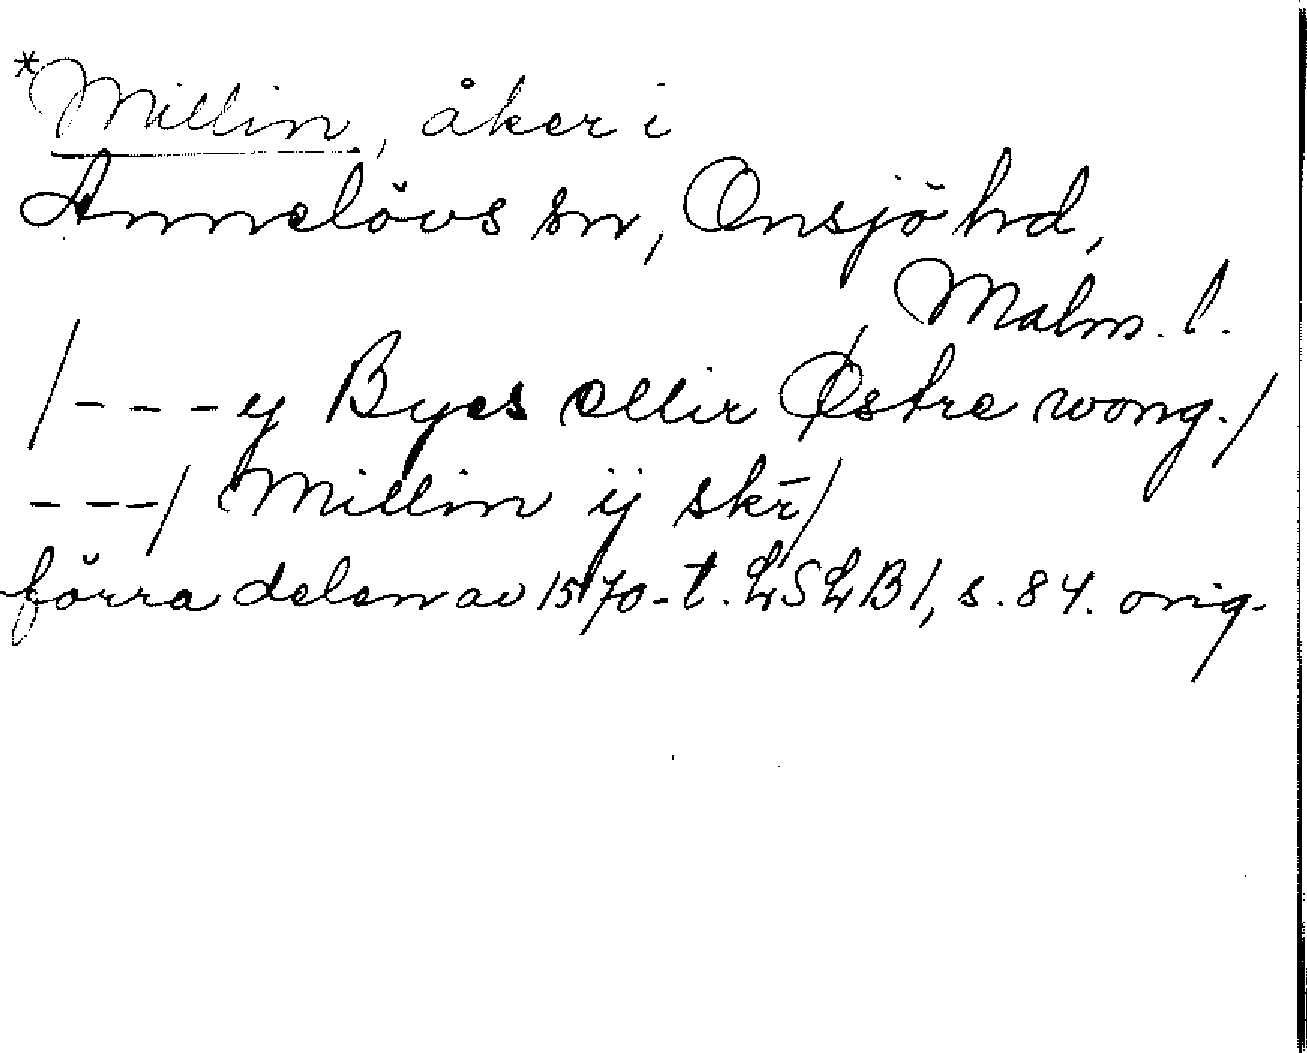 *Millin, åker i
Annelövs sn, Onsjö hd,
Malm. l.
/---y Byes ellir Østre wong./
---/ Millin ij skr̄/
förra delen av 1570-t. LSLB1, s. 84. orig.